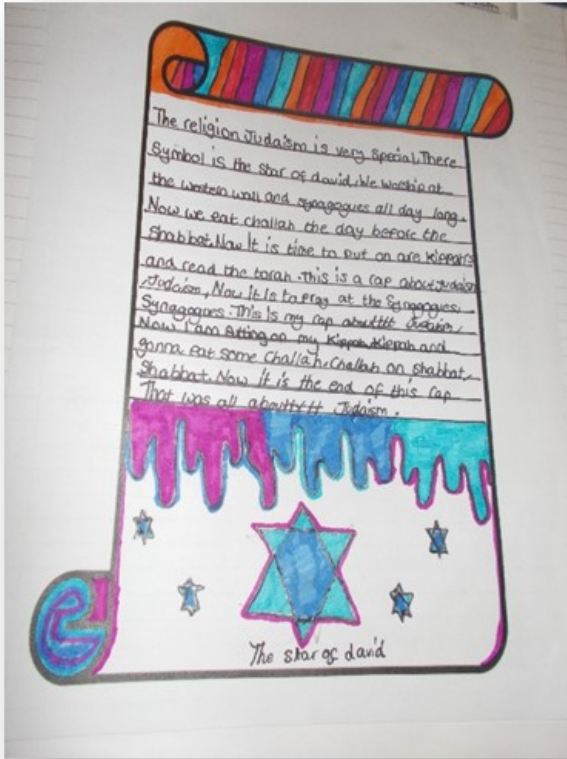 The religion Judaism is very special. There
Symbol is the star of david. We worship at
the western wall and synagogues all day long.
Now we eat challah the day before the
Shabbat. Now It is time to put on are kippah's
and read the torah. This is a rap about Judaism
Judaism, Now it is to pray at the Synagogues,
Synagogues. This is my rap abouttt Judaism,
Now I am Atting on my Kippah, Kippah and
gonna eat some Challah, Challah on shabbat,
Shabbat. Now it is the end of this rap
That was all abouttttt Judaism.
The star of david